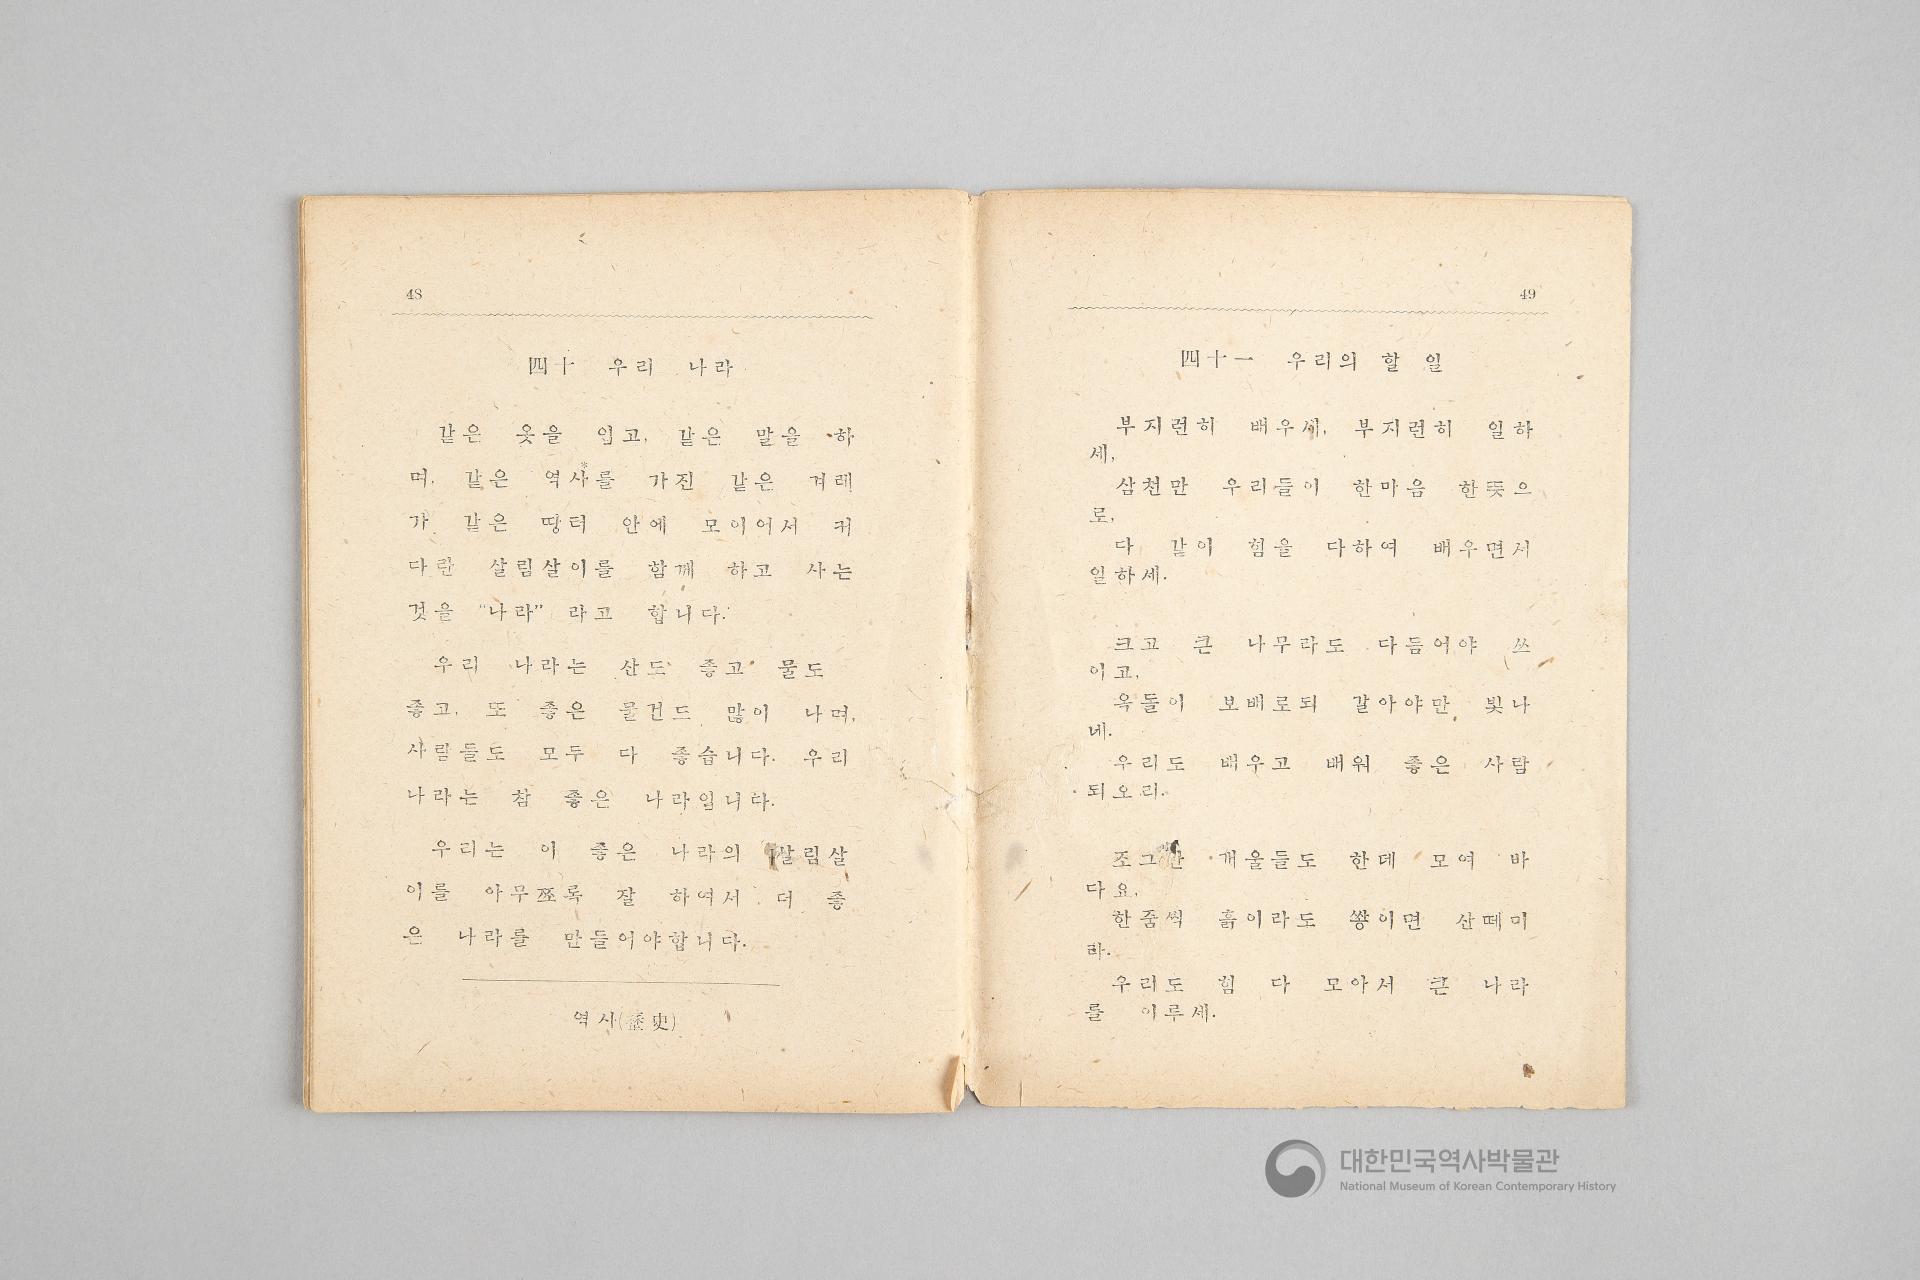 48
四十 우리 나라
같은 옷을 입고, 같은 말을 하
며, 같은 역사*를 가진 같은 겨레
가 같은 땅터 안에 모이어서 커
다란 살림살이를 함께 하고 사는
것을 "나라" 라고 합니다.
우리 나라는 산도 좋고 물도
좋고, 또 좋은 물건도 많이 나며,
사람들도 모두 다 좋습니다. 우리
나라는 참 좋은 나라입니다.
우리는 이 좋은 나라의 살림살
이를 아무쪼록 잘 하여서 더 좋
은 나라를 만들어야합니다.
역사(歷史)
49
四十一 우리의 할 일
부지런히 배우세, 부지런히 일하
세,
삼천만 우리들이 한마음 한뜻으
로,
다 같이 힘을 다하여 배우면서
일하세.
크고 큰 나무라도 다듬어야 쓰
이고,
옥돌이 보배로되 갈아야만 빛나
네.
우리도 배우고 배워 좋은 사람
되오리.
조그만 개울들도 한데 모여 바
다요,
한줌씩 흙이라도 쌓이면 산떼미
라.
우리도 힘 다 모아서 큰 나라
를 이루세.
대한민국역사박물관
National Museum of Korean Contemporary History